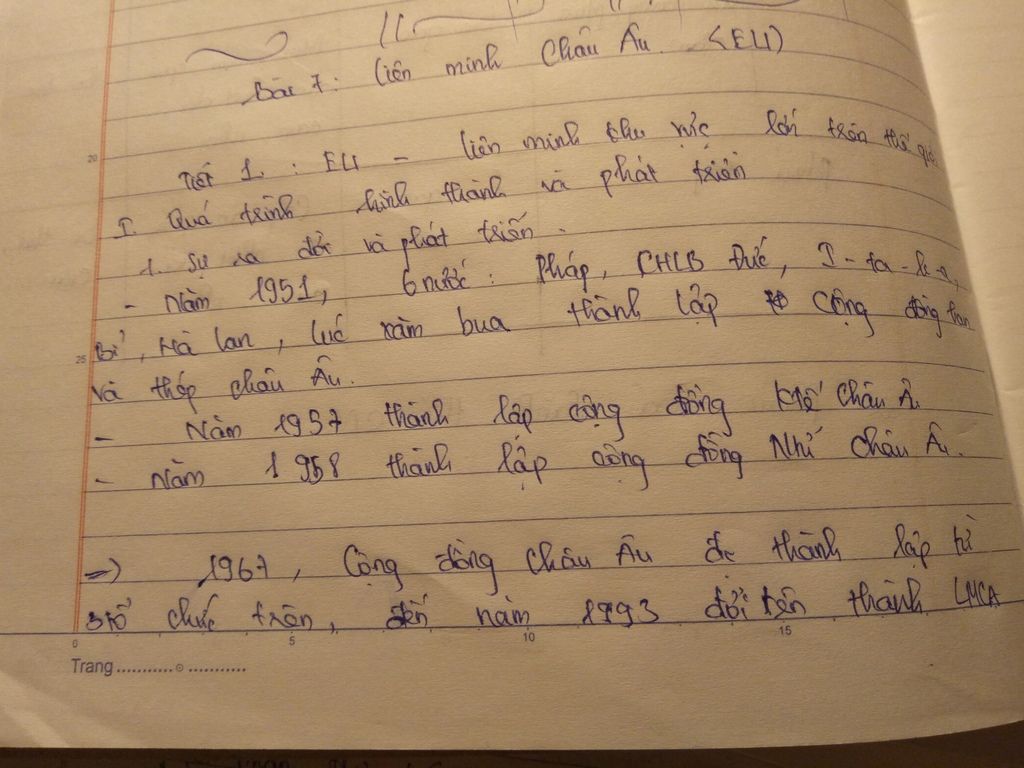 Bài 7: Liên minh Châu Âu. (EU)
20
Tiết 1. : EU - liên minh khu vực lớn trên thế giới
I Quá trình hình thành và phát triển
1. Sự ra đời và phát triển.
- Năm 1951, 6 nước: Pháp, CHLB Đức, I-ta-li-a,
25
Bỉ, Hà Lan, Lúc xăm bua thành lập cộng đồng than
và thép châu Âu.
- Năm 1957 thành lập cộng đồng Ktế Châu Â
- Năm 1958 thành lập cộng đồng Nhtử Châu Â.
→ 1967, Cộng đồng Châu Âu đc thành lập từ
3 tổ chức trên, đến năm 1993 đổi tên thành LMCA
0 5 10 15
Trang ........... ...........